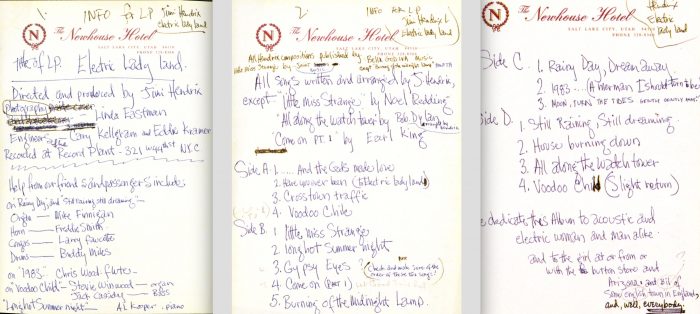 1. INFO for LP Jimi Hendrix
Electric Lady land
N The Newhouse Hotel
SALT LAKE CITY, UTAH
title of LP. Electric Lady Land.
Directed and produced by Jimi Hendrix
Photography
Linda Eastman
Engineers Gary Kellgram and Eddie Kramer
Recorded at Record Plant 321 N.Y.C
Help from our friends and passengers include
on Rainy Day, and Still raining still dreaming
Organ — Mike Finnigan
Horn — Freddie Smith
Congas — Larry Faucette
Drums — Buddy Miles
on "1983" Chris Wood flute
on Voodoo Child - Stevie Winwood — organ
Jack Casidy — Bass
"Long hot Summer night" — AL Kooper - piano
2. INFO for LP
Jimi Hendrix
Electric Lady land
N The Newhouse Hotel
SALT LAKE CITY, UTAH
All Hendrix compositions published by Bella Godiva Music
little Miss Strange by
All Songs written and arranged by J. Hendrix,
except "little Miss Strange" by Noel Redding
"All along the watch tower by Bob Dylan
"Come on PT. 1" by Earl King
Side A 1. .... And the Gods made love
2. Have you ever been (to Electric lady land)
3. Crosstown traffic
4. Voodoo Chile
Side B: 1 little Miss Strange
2. long hot Summer night
3. Gypsy Eyes
(check and make sure of the
order of these two songs)
4. Come on (PART 1)
5. Burning of the Midnight Lamp.
Hendrix
Electric
Lady land
N The Newhouse Hotel
SALT LAKE CITY, UTAH
Side C. 1. Rainy Day, Dream away
2. 1983... (A merman I should turn to be)
3. MOON, TURN THE TIDES GENTLY GENTLY AWAY
Side D. 1. Still Raining Still dreaming
2. House burning down
3. All along the Watch tower
4. Voodoo Child (Slight return)
dedicate this Album to acoustic and
electric woman and man alike.
and to the girl at or from or
with the button store and
Arizona and Bil of
Some english town in England
and, well, everybody.